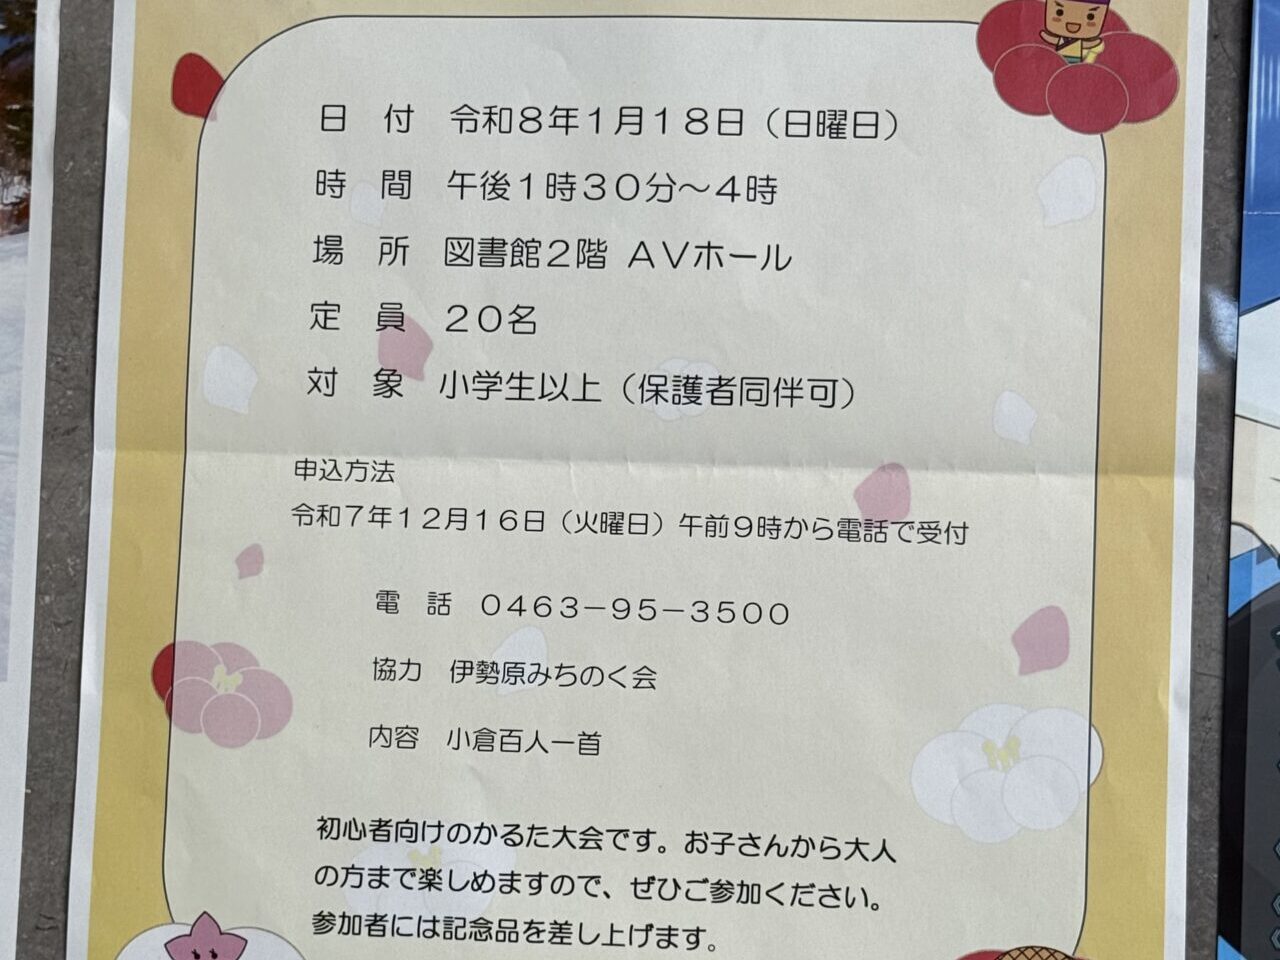 日　付　令和８年１月１８日（日曜日）
時　間　午後１時３０分～４時
場　所　図書館２階 ＡＶホール
定　員　２０名
対　象　小学生以上（保護者同伴可）
申込方法
令和７年１２月１６日（火曜日）午前９時から電話で受付
電　話　０４６３－９５－３５００
協力　伊勢原みちのく会
内容　小倉百人一首
初心者向けのかるた大会です。お子さんから大人
の方まで楽しめますので、ぜひご参加ください。
参加者には記念品を差し上げます。